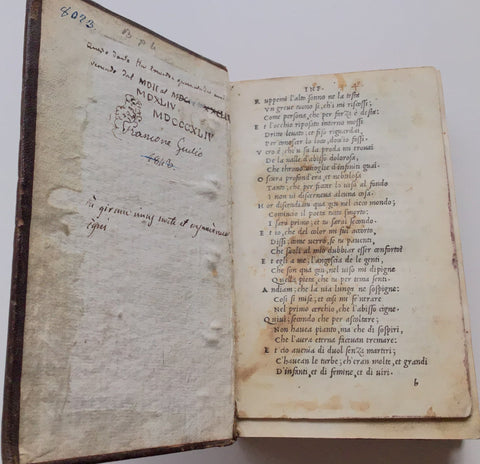 8023
B p h
Questo Dante
MDII al
MDXLIV
MDCCCXLIV
Francone Giulio
1843
INF. 4
R uppemi l'alto sonno ne la testa
V n greue tuono si, ch'i mi riscossi;
Come persona, che per forza è desta:
E t l'occhio riposato intorno mossi
Dritto leuato; et fiso riguardai,
Per conoscer lo loco, dou'io fossi.
V ero è; che'n su la proda mi trouai
De la ualle d'abisso dolorosa,
Che throno accoglie d'infiniti guai.
O scura profond'era, et nebulosa
Tanto; che per ficcar lo uiso al fondo
I non ui discerneua alcuna cosa.
H or discendiam qua giu nel cieco mondo;
Comincio il poeta tutto smorto:
I saro primo; et tu sarai secondo.
E t io, che del color mi fui accorto,
Dissi; come uerro, se tu pauenti,
Che suoli al mio dubbiar esser conforto?
E t egli a me; l'angoscia de le genti,
Che son qua giu, nel uiso mi dipigne
Quella pieta, che tu per tema senti.
A ndiam; che la uia lunga ne sospigne:
Cosi si mise; et cosi me fe'ntrare
Nel primo cerchio, che l'abisso cigne.
Q uiui; secondo che per ascoltare;
Non hauea pianto, ma che di sospiri,
Che l'aura eterna faceuan tremare:
E t cio auenia di duol senza martiri;
C'hauean le turbe; ch'eran molte, et grandi
D'infanti, et di femine, et di uiri.
b